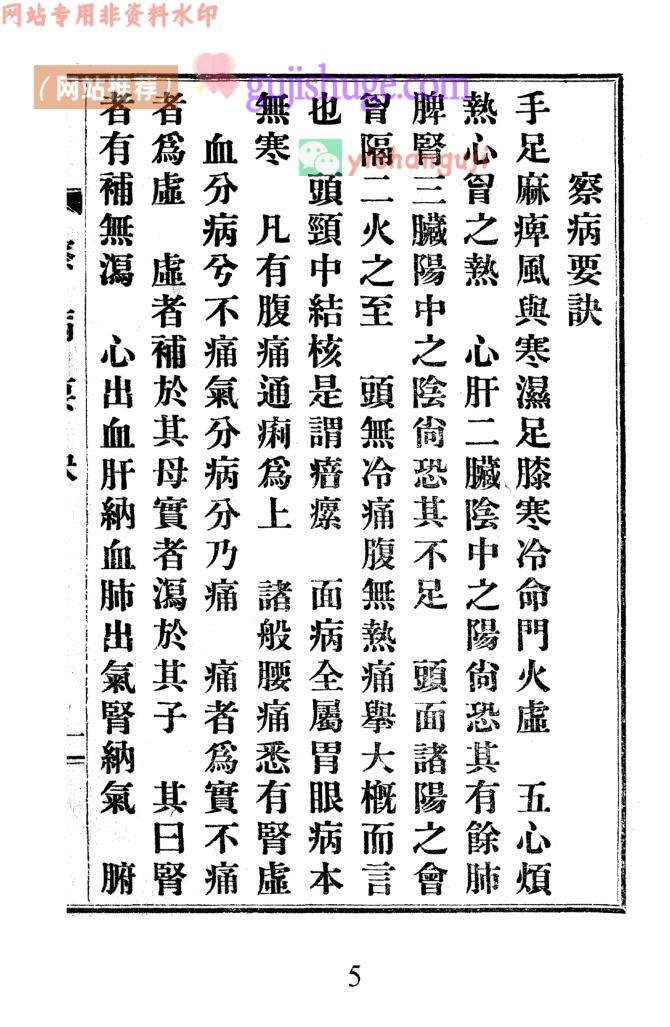 网站专用非资料水印
（网站推荐）
gujishuge.com
yishanguji
察病要訣
手足麻痺風與寒濕足膝寒冷命門火虛　五心煩
熱心胷之熱　心肝二臟陰中之陽尙恐其有餘肺
脾腎三臟陽中之陰尙恐其不足　頭面諸陽之會
胷隔二火之至　頭無冷痛腹無熱痛舉大槪而言
也　頭頸中結核是謂瘖瘰　面病全屬胃眼病本
無寒　凡有腹痛通痢爲上　諸般腰痛悉有腎虛
血分病兮不痛氣分病分乃痛　痛者爲實不痛
者爲虛　虛者補於其母實者瀉於其子　其曰腎
者有補無瀉　心出血肝納血肺出氣腎納氣　腑
二
5